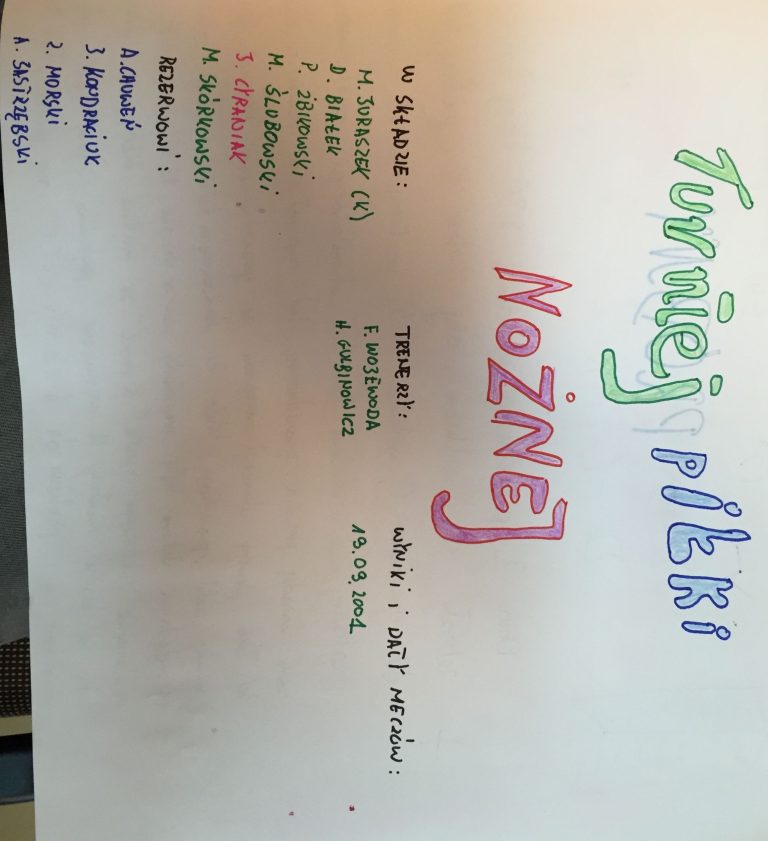 Turniej piłki
NOŻNEJ
W SKŁADZIE:
M. JURASZEK (K)
D. BIAŁEK
P. ŻBIKOWSKI
M. ŚLUBOWSKI
J. CYRANIAK
M. SKÓRKOWSKI
REZERWOWI:
A. CHUWEŃ
J. KONDRACIUK
2. MORSKI
A. JASTRZĘBSKI
TRENERZY:
F. WOJEWODA
H. GULBINOWICZ
WYNIKI i DATY MECZÓW:
19.09.2001